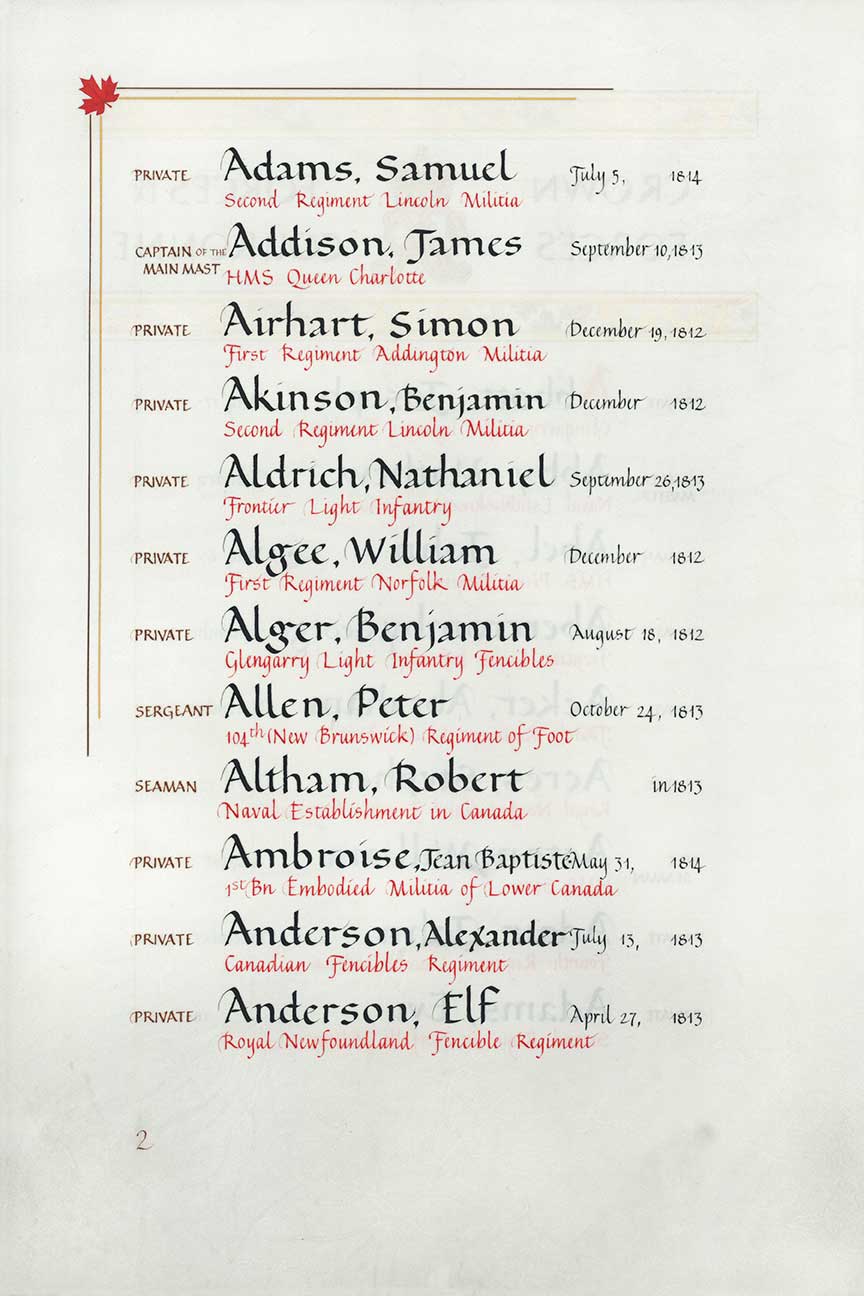 PRIVATE Adams, Samuel July 5, 1814
Second Regiment Lincoln Militia
CAPTAIN OF THE MAIN MAST Addison, James September 10, 1813
HMS Queen Charlotte
PRIVATE Airhart, Simon December 19, 1812
First Regiment Addington Militia
PRIVATE Akinson, Benjamin December 1812
Second Regiment Lincoln Militia
PRIVATE Aldrich, Nathaniel September 26, 1813
Frontier Light Infantry
PRIVATE Algee, William December 1812
First Regiment Norfolk Militia
PRIVATE Alger, Benjamin August 18, 1812
Glengarry Light Infantry Fencibles
SERGEANT Allen, Peter October 24, 1813
104th (New Brunswick) Regiment of Foot
SEAMAN Altham, Robert in 1813
Naval Establishment in Canada
PRIVATE Ambroise, Jean Baptiste May 31, 1814
1st Bn Embodied Militia of Lower Canada
PRIVATE Anderson, Alexander July 13, 1813
Canadian Fencibles Regiment
PRIVATE Anderson, Elf April 27, 1813
Royal Newfoundland Fencible Regiment
2